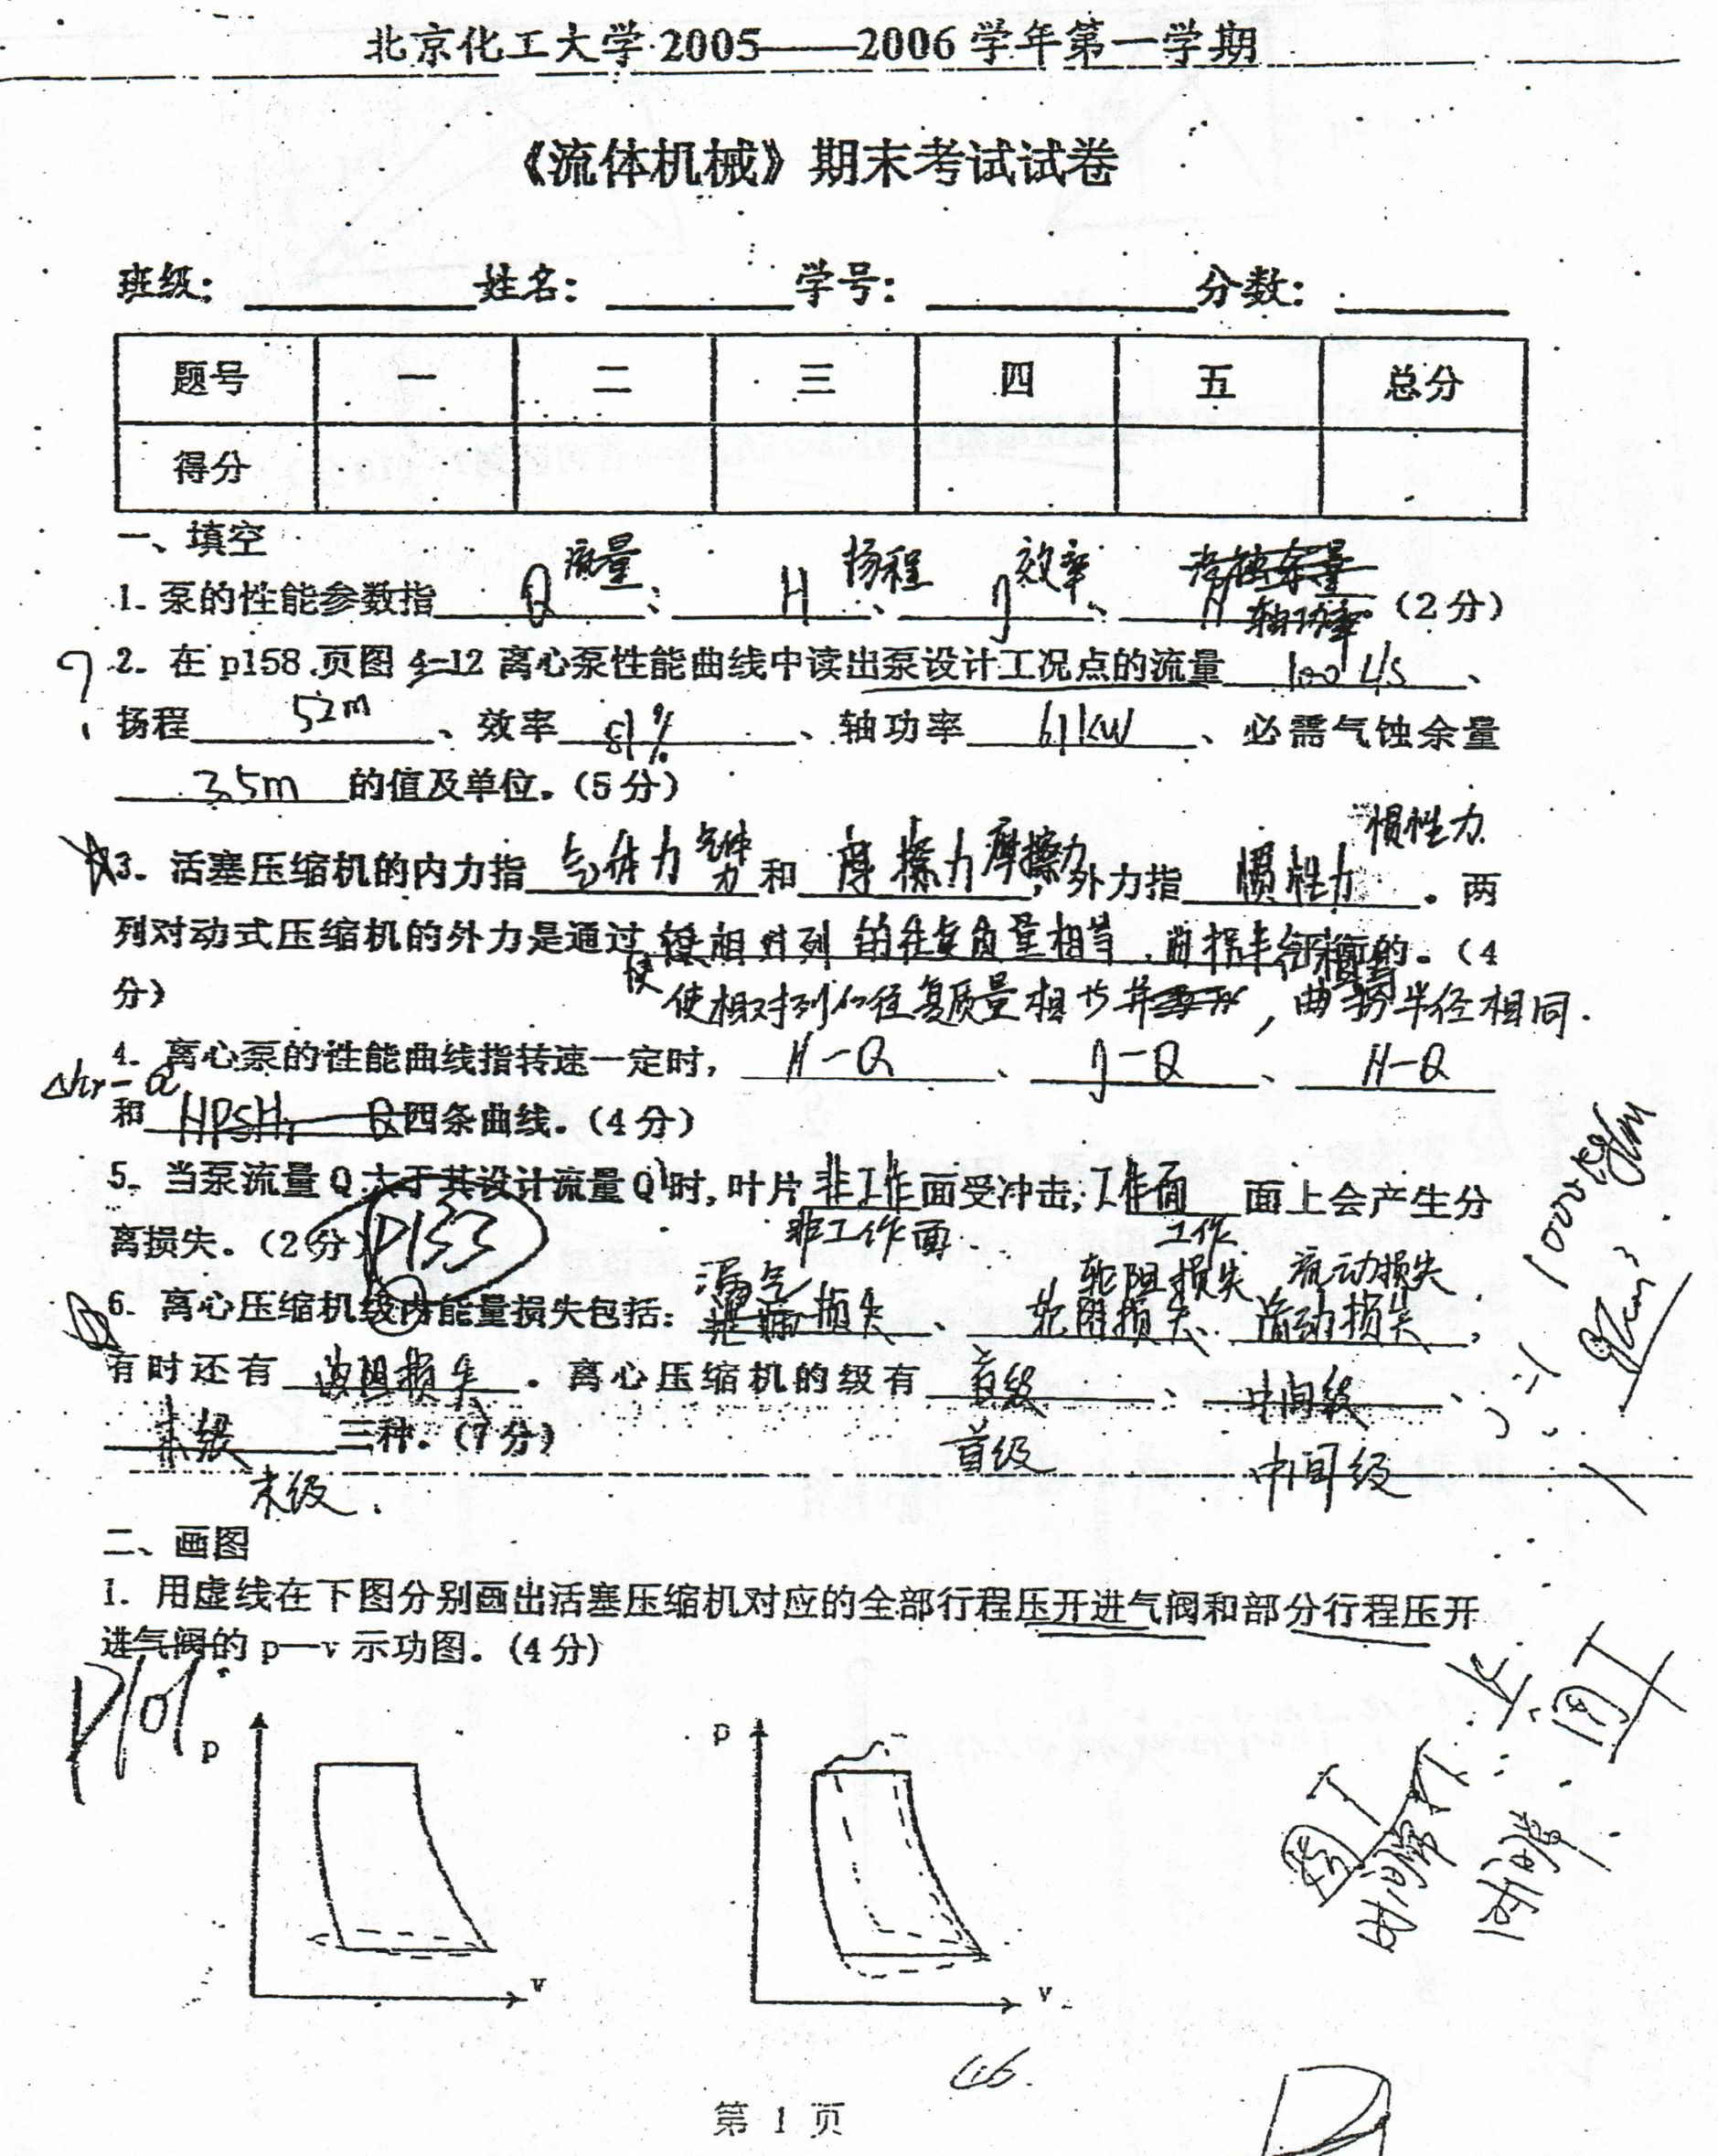 北京化工大学 2005——2006 学年第一学期
《流体机械》期末考试试卷
班级: 姓名: 学号: 分数:
题号 一 二 三 四 五 总分
得分
一、填空
流量 扬程 效率
1. 泵的性能参数指 Q 、 H 、 η 、 N 轴功率 (2 分)
2. 在 p158 页图 4-12 离心泵性能曲线中读出泵设计工况点的流量 100 L/s 、
扬程 52m 、效率 81% 、轴功率 61kW 、必需气蚀余量
3.5m 的值及单位。(5 分)
惯性力
3. 活塞压缩机的内力指 气体力 气体力 和 摩擦力 摩擦力 ,外力指 惯性力 。两
列对动式压缩机的外力是通过 使相对列的往复质量相当 曲拐半径相等 平衡的。(4
分)
使相对列的往复质量相当 , 曲拐半径相同.
4. 离心泵的性能曲线指转速一定时, H-Q 、 η-Q 、 H-Q
Δhr-Q
和 NPSHr Q 四条曲线。(4 分)
5. 当泵流量 Q 大于其设计流量 Q 时,叶片 非工作 面受冲击; 工作面 面上会产生分
离损失。(2 分) P153 非工作面 工作
漏气 轮阻损失 流动损失
6. 离心压缩机级内能量损失包括: 损失 、 轮阻损失 、 流动损失 ,
有时还有 波阻损失 。离心压缩机的级有 首级 、 中间级 、
末级 三种。(7 分)
末级 首级 中间级
1000 kg/m
二、画图
1. 用虚线在下图分别画出活塞压缩机对应的全部行程压开进气阀和部分行程压开
进气阀的 p—v 示功图。(4 分)
P101
p v
p v
66
第 1 页